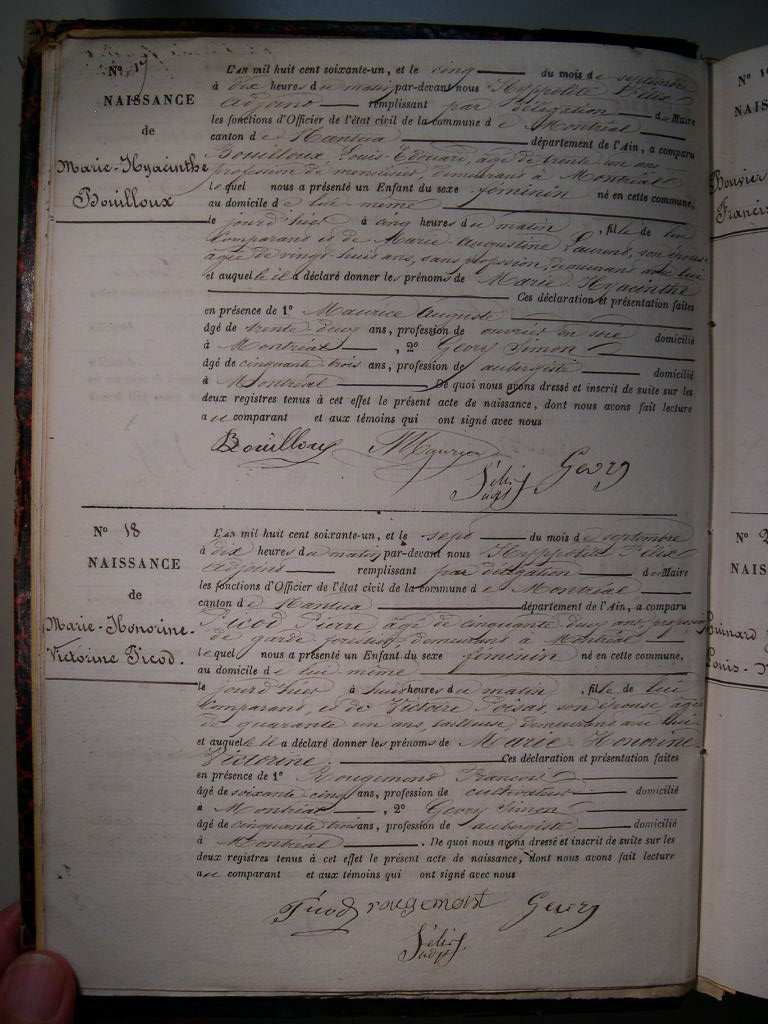 N° 17
NAISSANCE
de
Marie-Hyacinthe
Bouilloux
L'AN mil huit cent soixante-un, et le cinq du mois de septembre
à dix heures du matin par-devant nous Hyppolite Félix
adjoint remplissant par délégation de Maire
les fonctions d'Officier de l'état civil de la commune de Montréal
canton de Nantua département de l'Ain, a comparu
Bouilloux, Louis Edouard, âgé de trente un ans
profession de menuisier, demeurant à Montréal
lequel nous a présenté un Enfant du sexe féminin né en cette commune,
au domicile de lui même
le jour d'hier à cinq heures du matin, fille de lui
comparant et de Marie Augustine Laurent, son épouse
âgée de vingt huit ans, sans profession, demeurant avec lui
et auquel il a déclaré donner les prénoms de Marie Hyacinthe
Ces déclaration et présentation faites
en présence de 1° Maurice Auguste
âgé de trente deux ans, profession de ouvrier en soie domicilié
à Montréal, 2° Gevry Simon
âgé de cinquante trois ans, profession de aubergiste domicilié
à Montréal De quoi nous avons dressé et inscrit de suite sur les
deux registres tenus à cet effet le présent acte de naissance, dont nous avons fait lecture
au comparant et aux témoins qui ont signé avec nous
Bouilloux Gevry
Félix
adjt
N° 18
NAISSANCE
de
Marie-Honorine-
Victorine Picod.
L'AN mil huit cent soixante-un, et le sept du mois de septembre
à dix heures du matin, par-devant nous Hyppolite Félix
adjoint remplissant par délégation de Maire
les fonctions d'Officier de l'état civil de la commune de Montréal
canton de Nantua département de l'Ain, a comparu
Picod Pierre âgé de cinquante deux ans, profession
de garde forestier, demeurant à Montréal
lequel nous a présenté un Enfant du sexe féminin né en cette commune,
au domicile de lui même
le jour d'hier à huit heures du matin, fille de lui
comparant, et de Victoire son épouse âgée
de quarante un ans, demeurant avec lui
et auquel il a déclaré donner les prénoms de Marie Honorine
Victorine. Ces déclaration et présentation faites
en présence de 1° Rougemont François
âgé de soixante cinq ans, profession de cultivateur domicilié
à Montréal, 2° Gevry Simon
âgé de cinquante trois ans, profession de aubergiste domicilié
à Montréal. De quoi nous avons dressé et inscrit de suite sur les
deux registres tenus à cet effet le présent acte de naissance, dont nous avons fait lecture
au comparant et aux témoins qui ont signé avec nous
Picod rougemont Gevry
Félix
adjt
N°
NAIS
Bouvier
Franci
N°
NAIS
Louis-